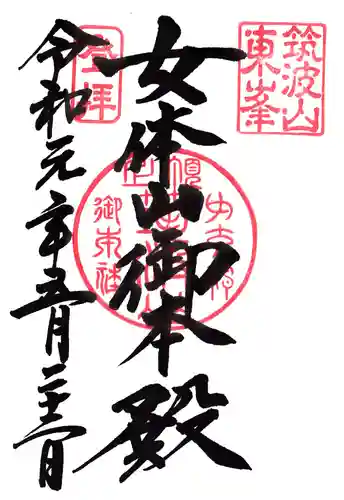 筑波山
東峯
女体山御本殿
登拝
令和元年五月二十二日